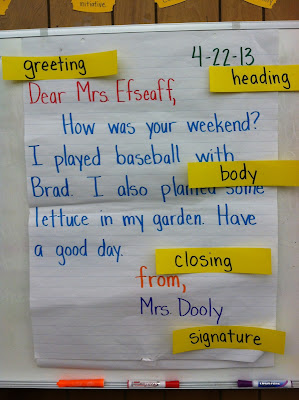 initiative
4-22-13
greeting
heading
Dear Mrs. Efseaff,
How was your weekend?
I played baseball with
Brad. I also planted some
body
lettuce in my garden. Have
a good day.
closing
from,
Mrs. Dooly
signature